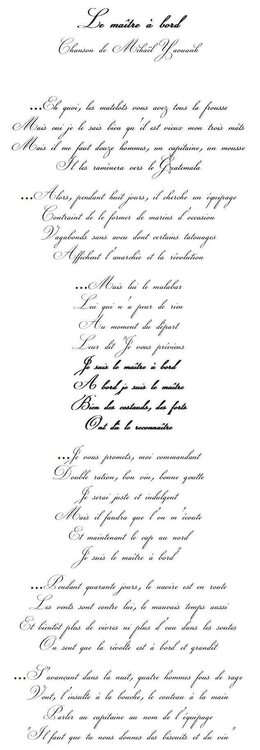 Le maître à bord
Chanson de Mihaïl Yaouank
...Eh quoi, les matelots vous avez tous la frousse
Mais oui je le sais bien qu'il est vieux mon trois mâts
Mais il me faut douze hommes, un capitaine, un mousse
Il les raminera vers le Guatemala
...Alors, pendant huit jours, il cherche un équipage
Contraint de le former de marins d'occasion
Vagabonds sans aveu dont certains tatouages
Affichent l'anarchie et la révolution
...Mais lui le malabar
Lui qui n'a peur de rien
Au moment du départ
Leur dit "Je vous préviens
Je suis le maître à bord
A bord je suis le maître
Bien des costauds, des forts
Ont dû le reconnaître
...Je vous promets, moi commandant
Double ration, bon vin, bonne goutte
Je serai juste et indulgent
Mais il faudra que l'on m'écoute
Et maintenant le cap au nord
Je suis le maître à bord
...Pendant quarante jours, le navire est en route
Les vents sont contre lui, le mauvais temps aussi
Et bientôt plus de vivres ni plus d'eau dans les soutes
On sent que la révolte est à bord et grandit
...S'avançant dans la nuit, quatre hommes fous de rage
Vont, l'insulte à la bouche, le couteau à la main
Parler au capitaine au nom de l'équipage
"Il faut que tu nous donnes des biscuits et du vin"